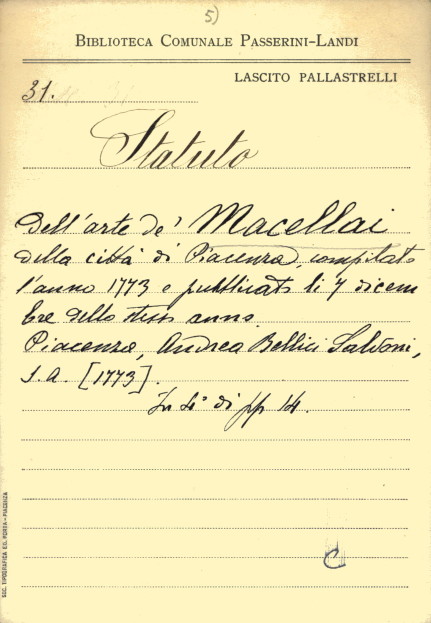 5)
BIBLIOTECA COMUNALE PASSERINI-LANDI
LASCITO PALLASTRELLI
31.
Statuto
Dell'arte de' Macellai
della città di Piacenza, compilato
l'anno 1773 e pubblicato li 7 dicem
bre dello stess anno.
Piacenza, Andrea Bellici Salvoni,
s.a. [1773].
In 4° di pp 14.
C
SOC. TIPOGRAFICA ED. PORTA-PIACENZA